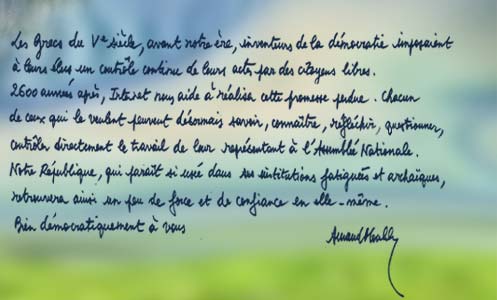 Les Grecs du Vᵉ siècle, avant notre ère, inventeurs de la démocratie imposaient
à leurs élus un contrôle continu de leurs actes par des citoyens libres.
2600 années après, Internet nous aide à réaliser cette promesse perdue. Chacun
de ceux qui le veulent peuvent désormais savoir, connaître, réfléchir, questionner,
contrôler directement le travail de leur représentant à l'Assemblée Nationale.
Notre République, qui paraît si usée dans ses institutions fatiguées et archaïques,
retrouvera ainsi un peu de force et de confiance en elle-même.
Bien démocratiquement à vous
Arnaud